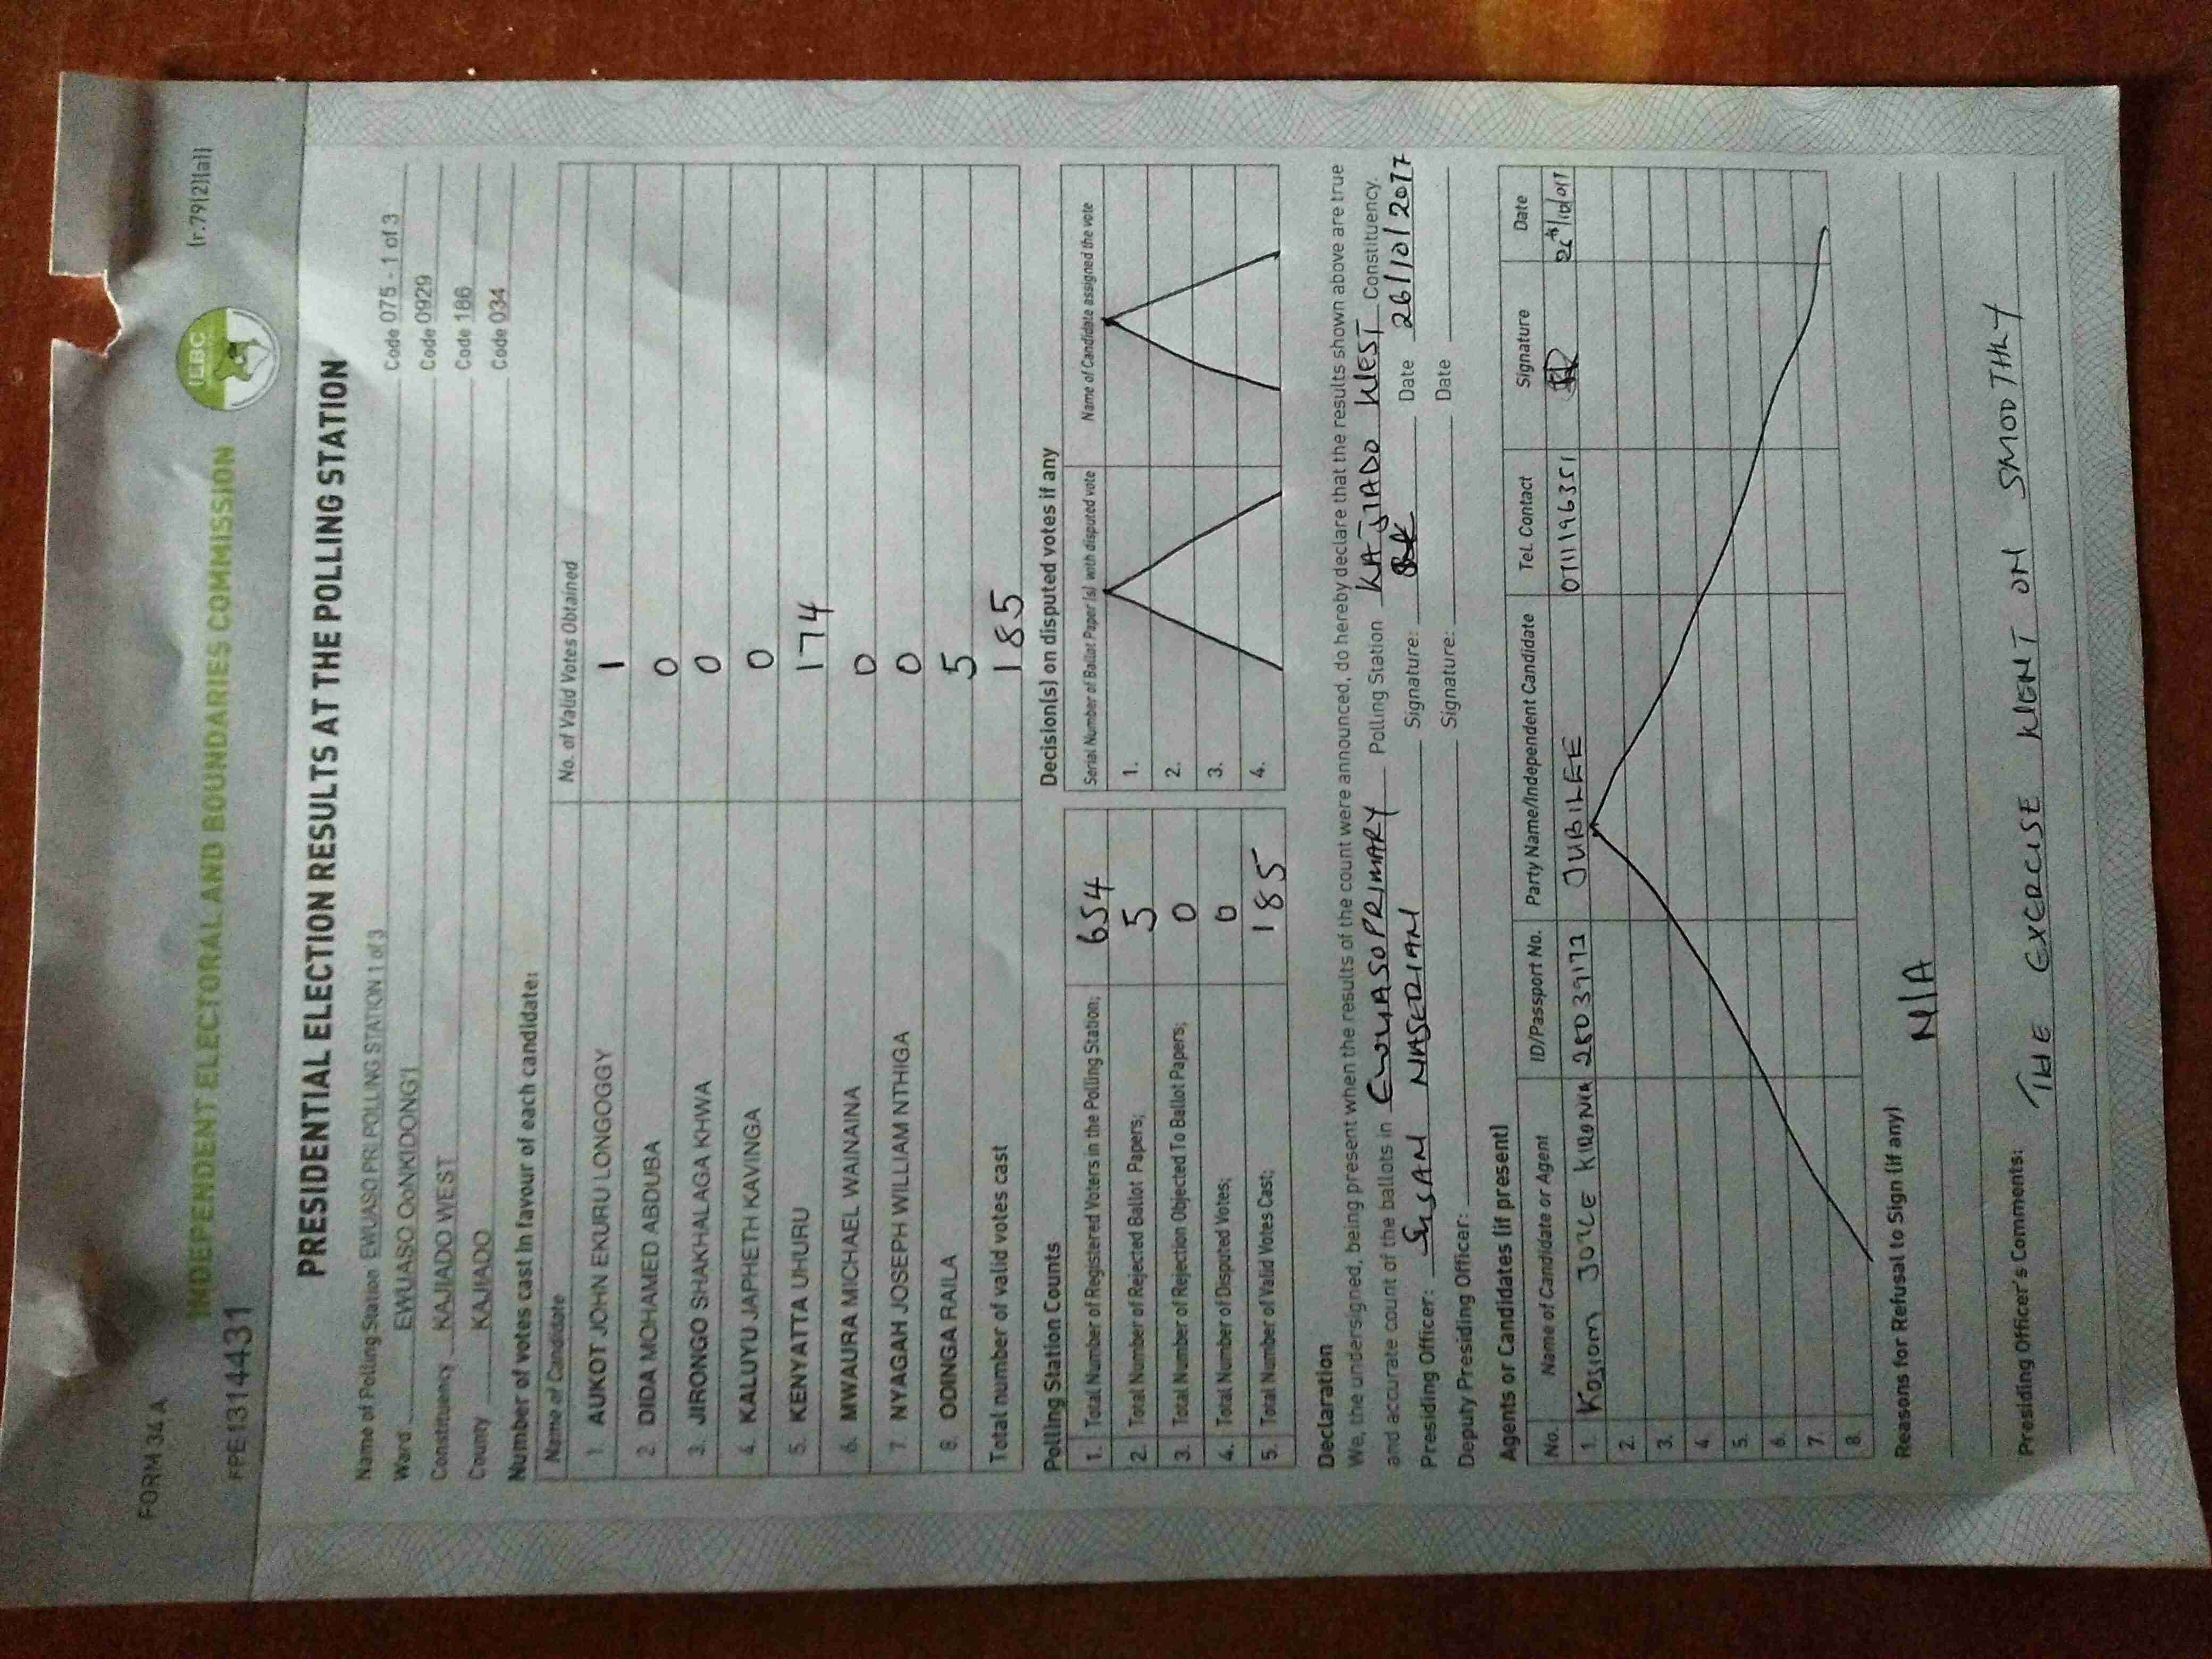 FORM 34 A
INDEPENDENT ELECTORAL AND BOUNDARIES COMMISSION
IEBC
(r.79(2)(a))
FPE1314431
PRESIDENTIAL ELECTION RESULTS AT THE POLLING STATION
Name of Polling Station EWUASO PRI POLLING STATION 1 of 3 Code 075 - 1 of 3
Ward EWUASO OoNKIDONG'I Code 0929
Constituency KAJIADO WEST Code 186
County KAJIADO Code 034
Number of votes cast in favour of each candidate:
Name of Candidate No. of Valid Votes Obtained
1. AUKOT JOHN EKURU LONGOGGY 1
2. DIDA MOHAMED ABDUBA 0
3. JIRONGO SHAKHALAGA KHWA 0
4. KALUYU JAPHETH KAVINGA 0
5. KENYATTA UHURU 174
6. MWAURA MICHAEL WAINAINA 0
7. NYAGAH JOSEPH WILLIAM NTHIGA 0
8. ODINGA RAILA 5
Total number of valid votes cast 185
Polling Station Counts
1. Total Number of Registered Voters in the Polling Station; 654
2. Total Number of Rejected Ballot Papers; 5
3. Total Number of Rejection Objected To Ballot Papers; 0
4. Total Number of Disputed Votes; 0
5. Total Number of Valid Votes Cast; 185
Decision(s) on disputed votes if any
Serial Number of Ballot Paper (s) with disputed vote Name of Candidate assigned the vote
1.
2.
3.
4.
Declaration
We, the undersigned, being present when the results of the count were announced, do hereby declare that the results shown above are true
and accurate count of the ballots in EWUASO PRIMARY Polling Station KAJIADO WEST Constituency.
Presiding Officer: SUSAN NASERIAN Signature: Date 26/10/2017
Deputy Presiding Officer: Signature: Date
Agents or Candidates (if present)
No. Name of Candidate or Agent ID/Passport No. Party Name/Independent Candidate Tel. Contact Signature Date
1. JOYCE 28039172 JUBILEE 0711196351
2.
3.
4.
5.
6.
7.
8.
Reasons for Refusal to Sign (if any)
N/A
Presiding Officer's Comments:
THE EXERCISE WENT ON SMOOTHLY